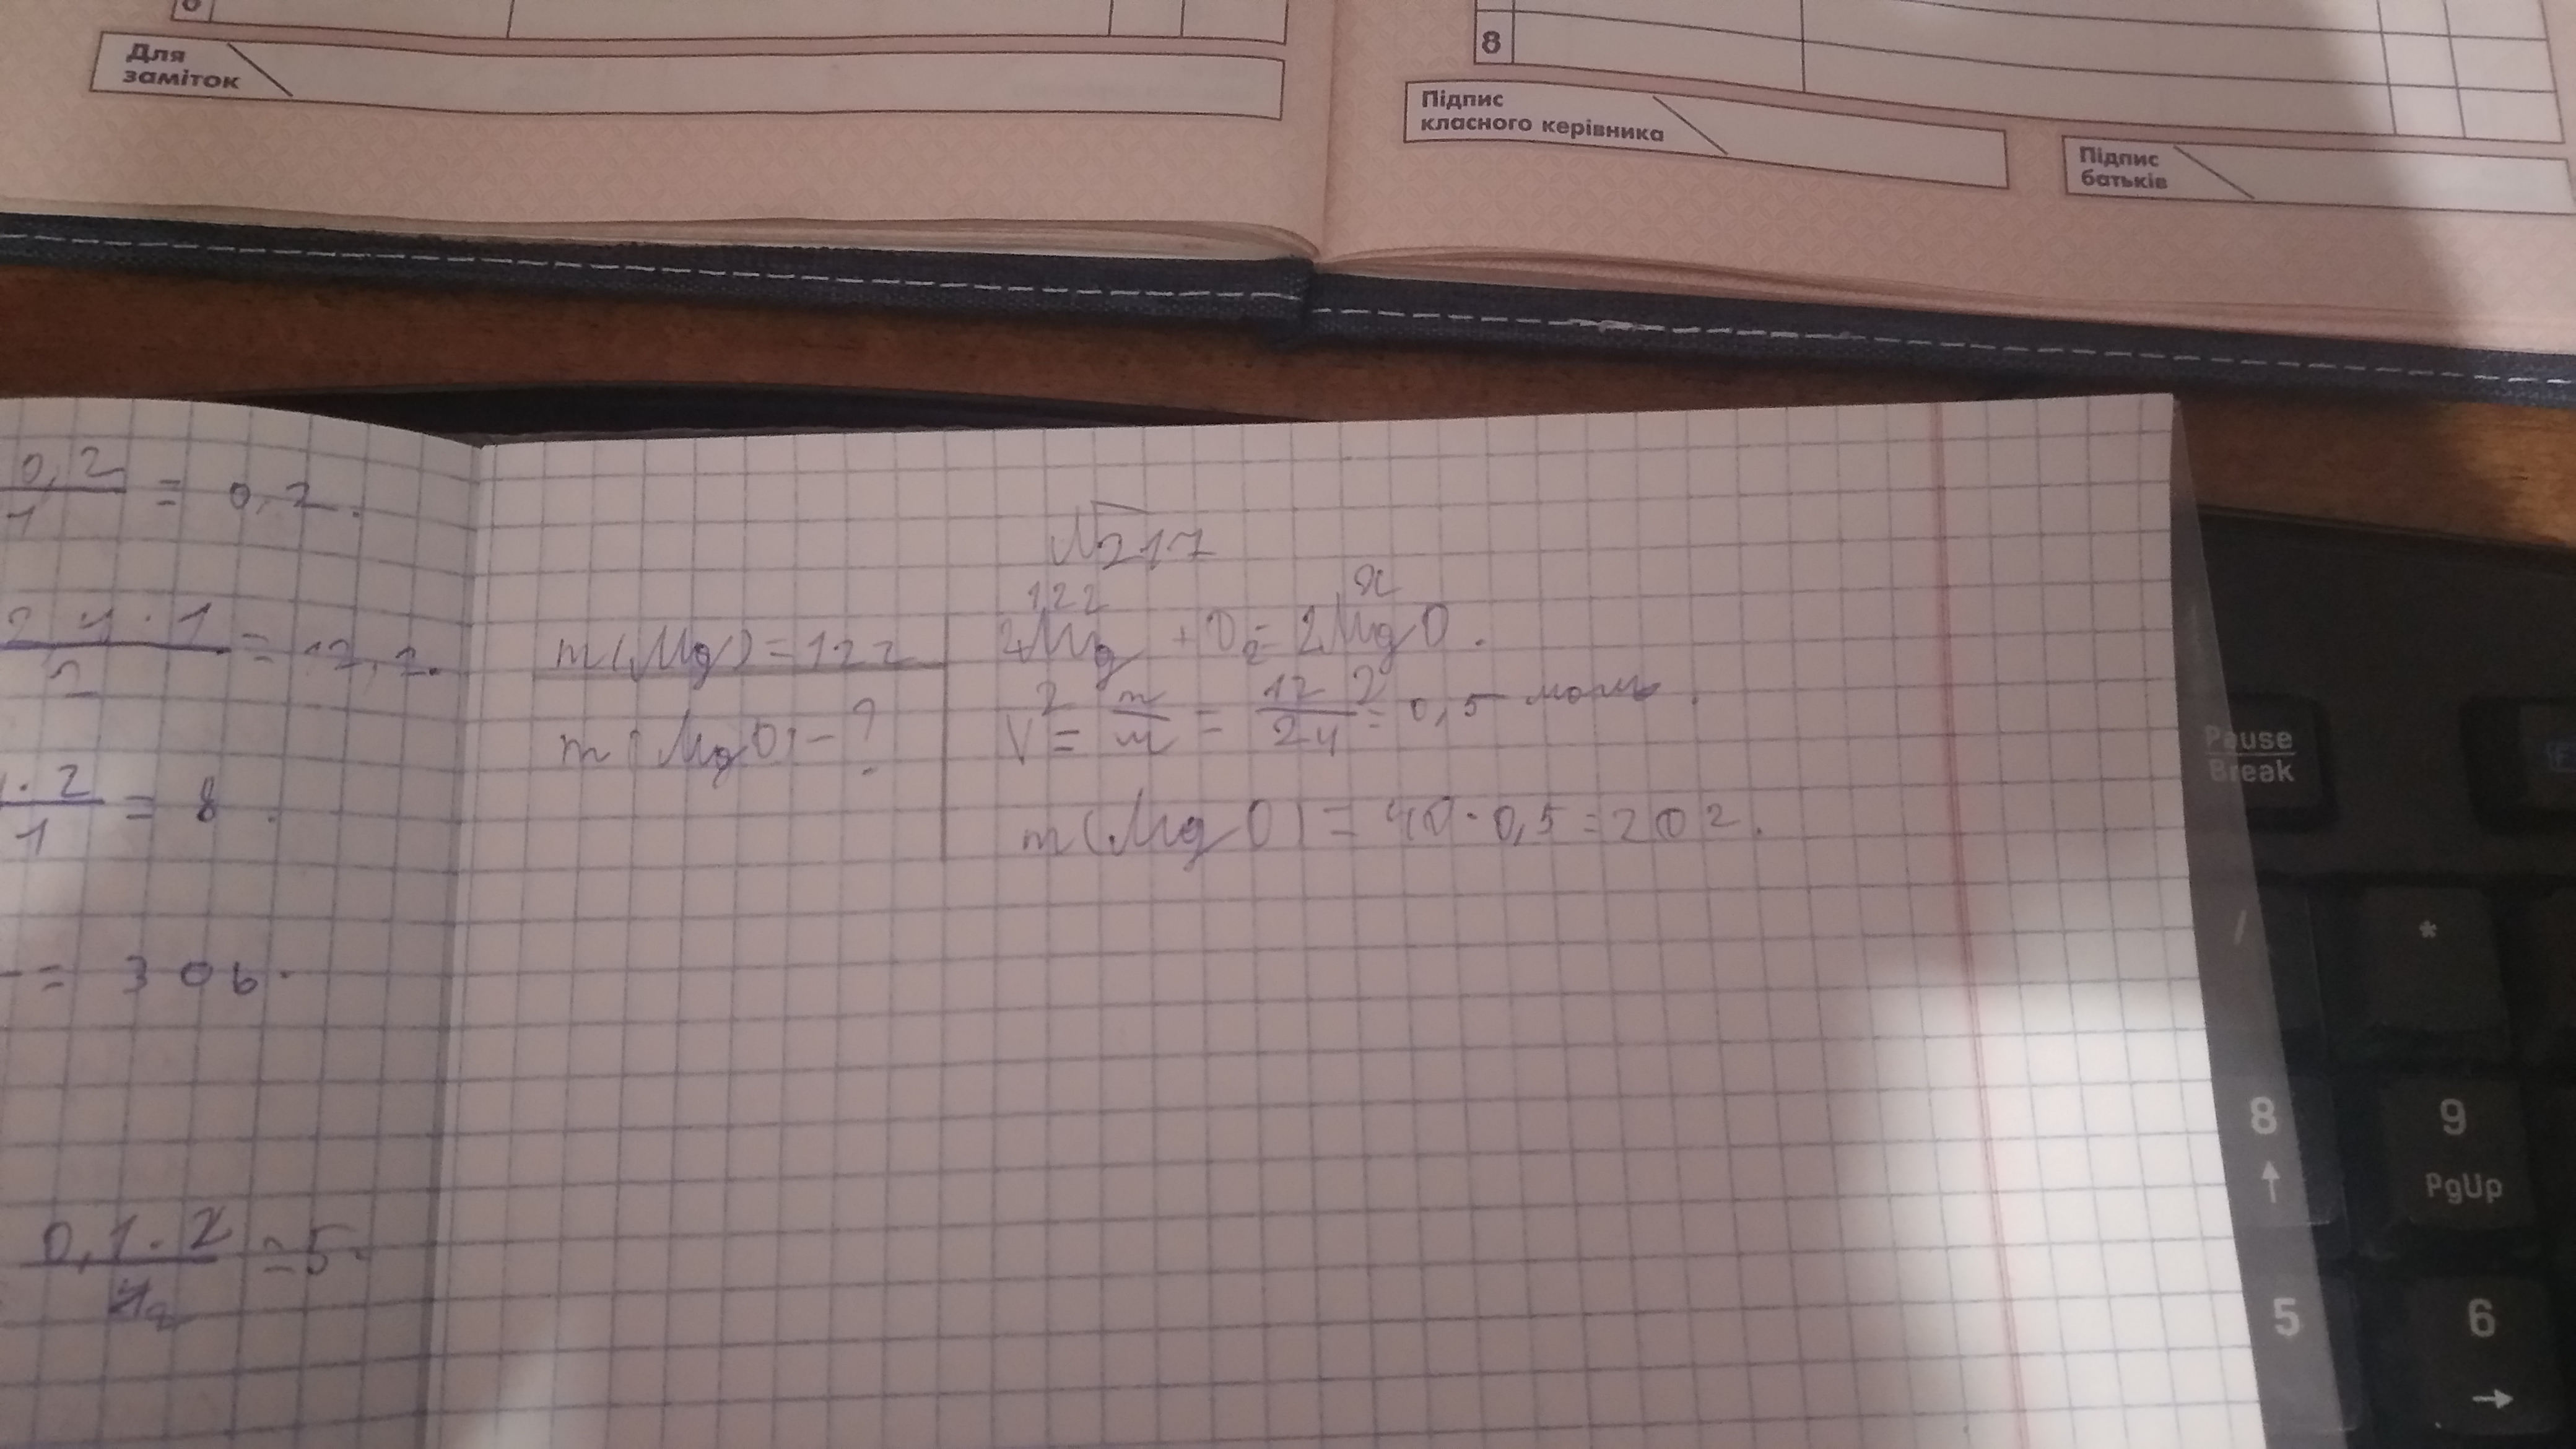 8
Для
заміток
8
Підпис
класного керівника
Підпис
батьків
0,2 / 1 = 0,2.
24·1 / 2 = 12,2.
·2 / 1 = 8.
= 306.
0,1·2 = 5.
№217
12г x
m(Mg)=12г 2Mg + O₂ = 2MgO.
m(MgO)-? V = m/м = 12 г/24 = 0,5 моль.
2
m(MgO) = 40·0,5=20г.
Pause
Break
/
*
8
↑
9
PgUp
5
6
→